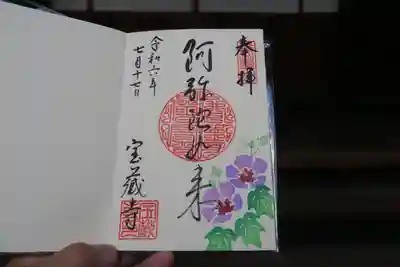 奉拝
阿弥陀如来
令和六年
七月十七日
宝蔵寺